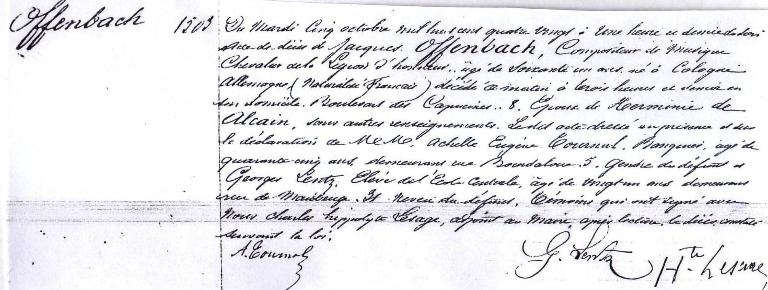 Offenbach 1503
Du Mardi Cinq octobre mil huit cent quatre vingt à Une heure et demie du soir
Acte de décès de Jacques Offenbach, Compositeur de Musique
Chevalier de la Légion d'honneur, âgé de soixante un ans né à Cologne
Allemagne (Naturalisé Français) décédé ce matin à trois heures et demie en
son domicile Boulevard des Capucines 8, Epoux de Herminie de
Alcain, sans autres renseignements. Ledit acte dressé en présence et sur
la déclaration de MM. Achille Eugène Tournal, âgé de
quarante cinq ans, demeurant rue Bourdaloue 5. Gendre du défunt et
Georges Lentz, Elève de l'Ecole Centrale, âgé de vingt un ans demeurant
rue de Maubeuge. 51 neveu du défunt, témoins qui ont signé avec
Nous Charles hippolyte Lesage, adjoint au Maire, après lecture, le décès constaté
suivant la loi.
A. Tournal G. Lentz Hte Lesage